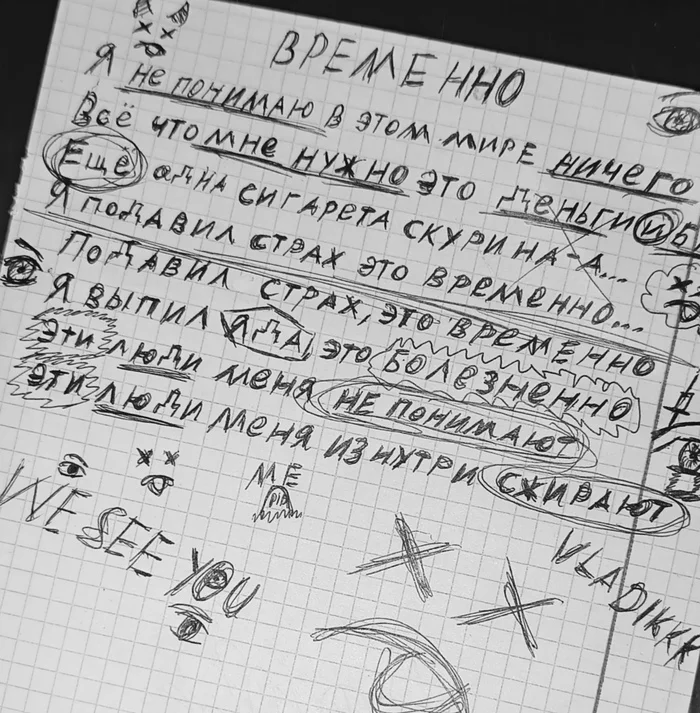 ВРЕМЕННО
Я не понимаю в этом мире ничего
Всё что мне нужно это деньги и б
Ещё одна сигарета скури на-а...
Я подавил страх это временно...
Подавил страх, это временно
Я выпил яда, это болезненно
Эти люди меня не понимают
Эти люди меня изнутри сжирают
ME
RIP
WE SEE YOU
VLADIKKK